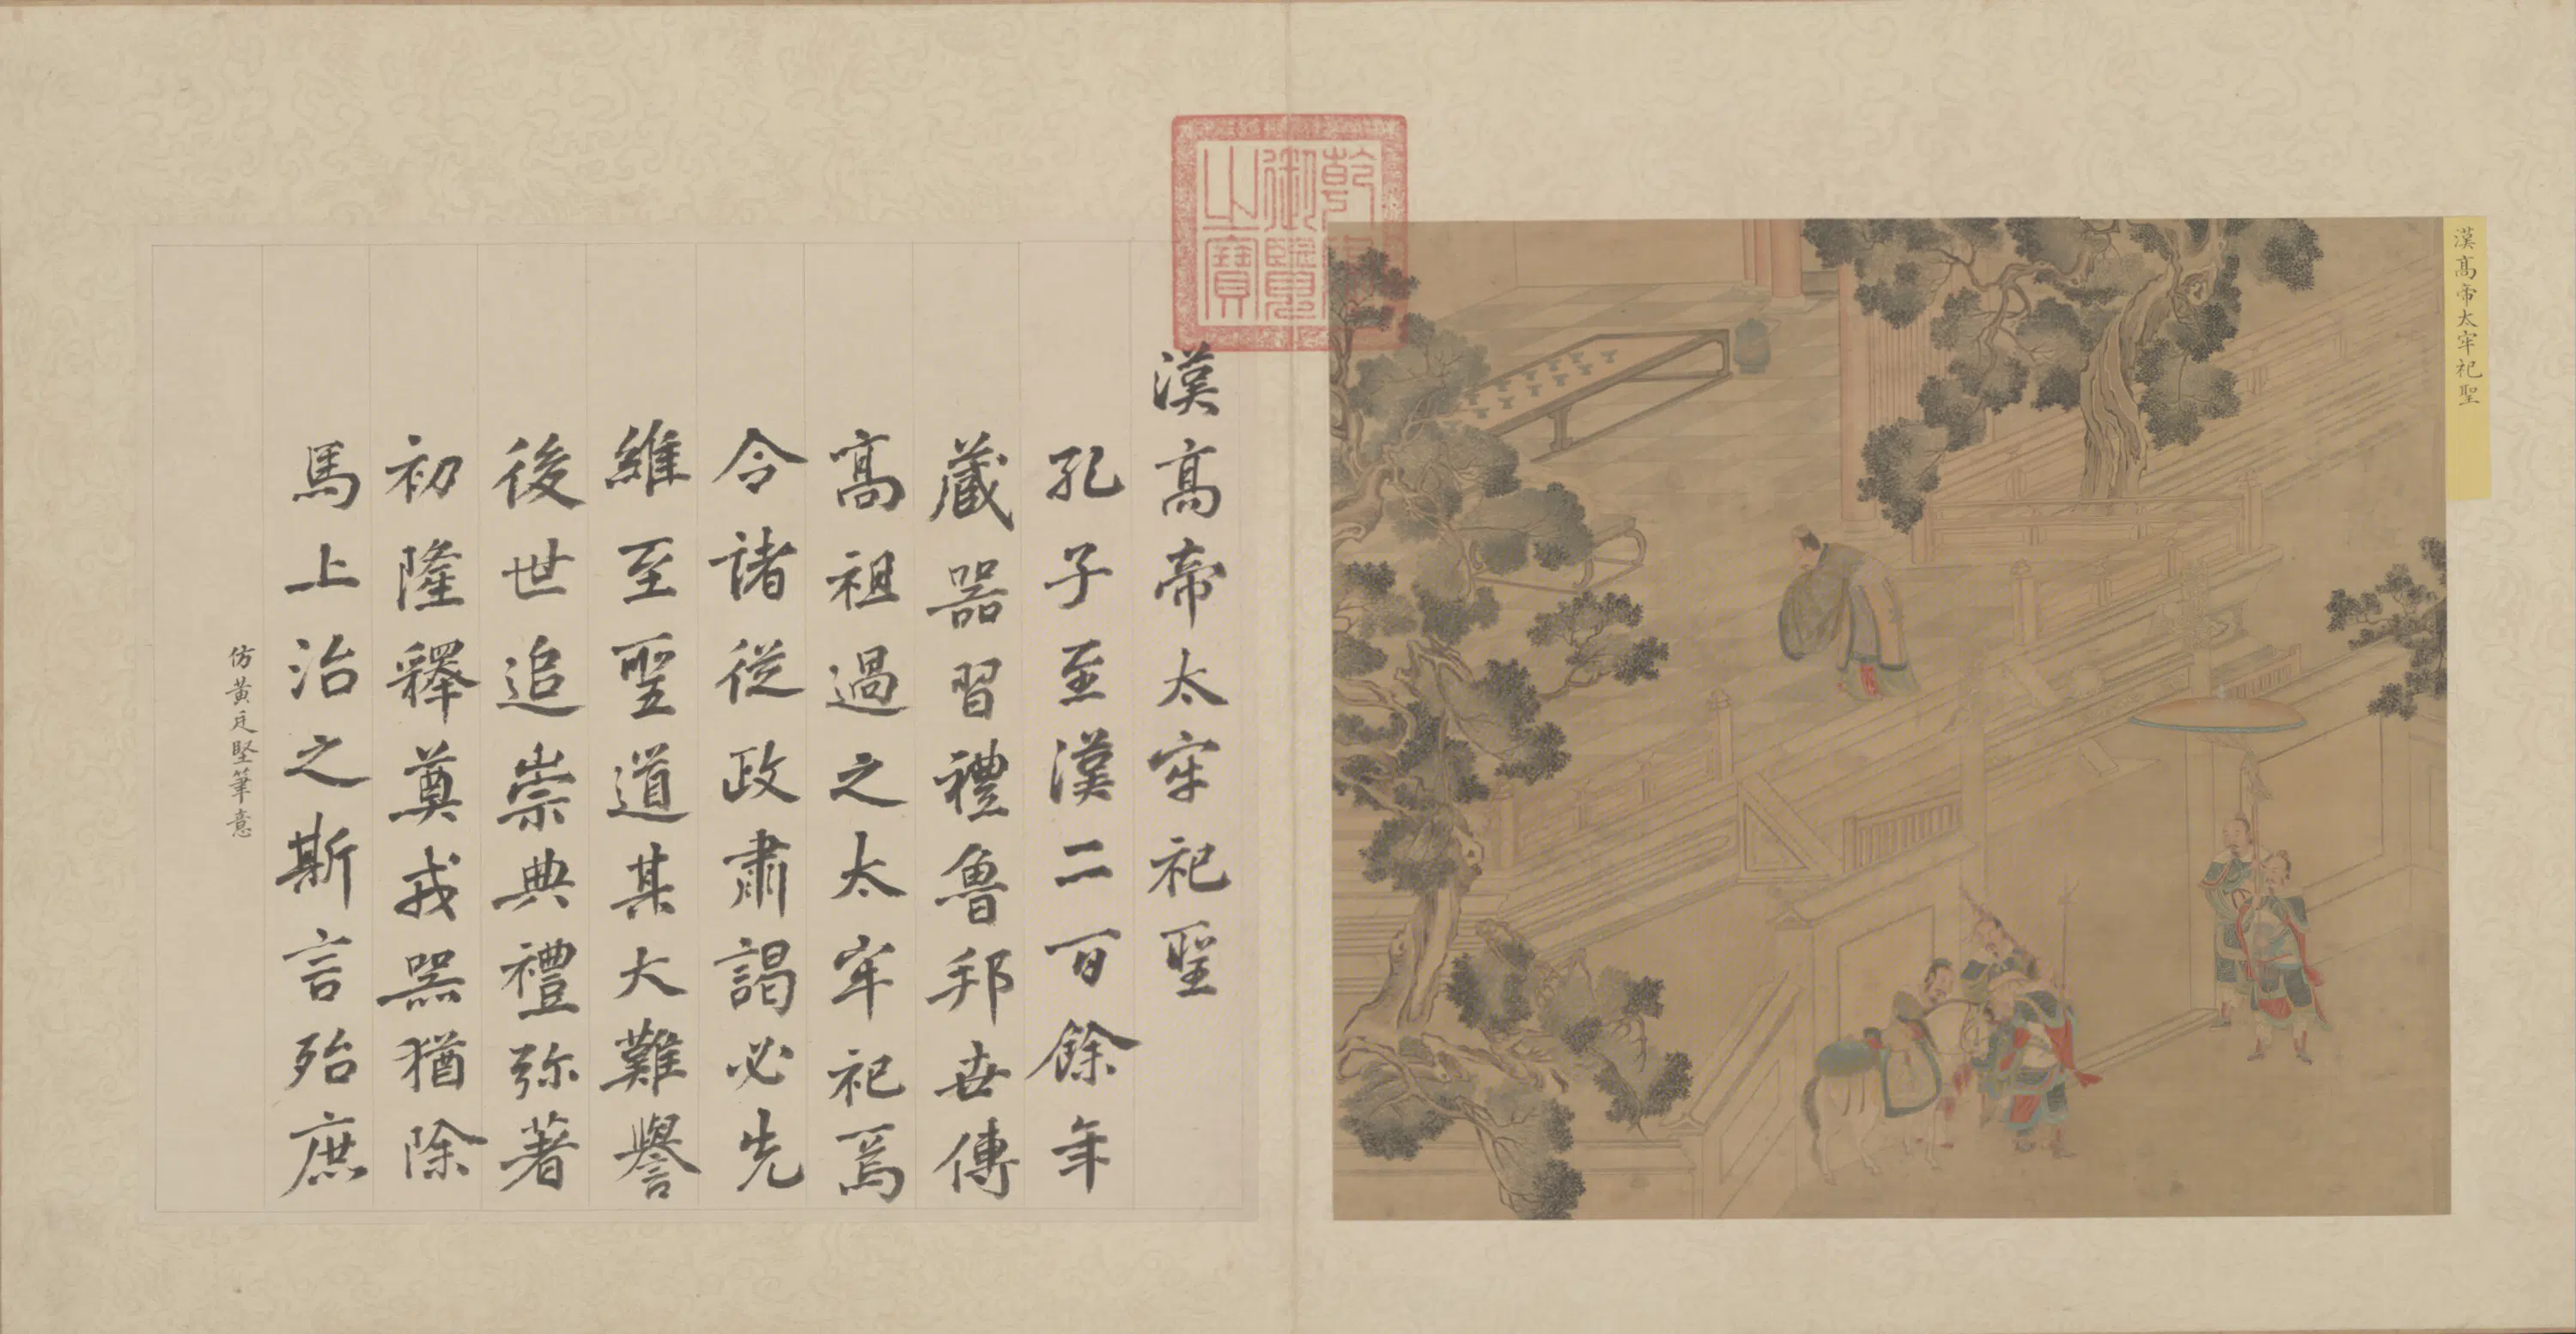 漢高帝太牢祀聖
乾隆御覽之寶
漢高帝太牢祀聖
孔子至漢二百餘年
藏器習禮魯邦世傳
高祖過之太牢祀焉
令諸從政肅謁必先
維至聖道其大難譽
後世追崇典禮弥著
初隆釋奠戎器猶除
馬上治之斯言殆庶
仿黃庭堅筆意